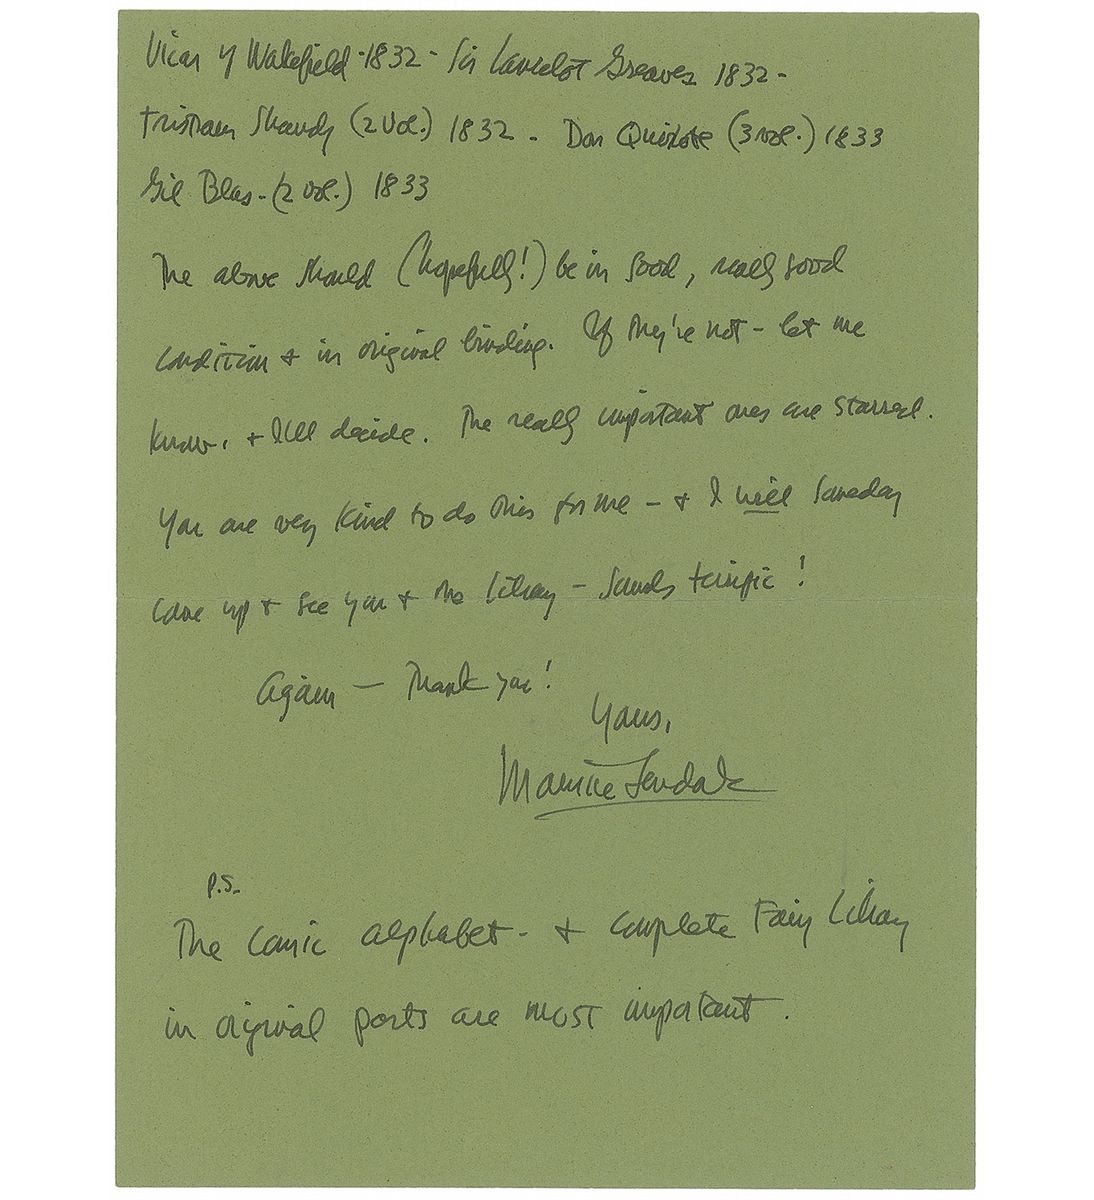 Vicar of Wakefield - 1832 - Sir Lancelot Greaves 1832 -
Tristram Shandy (2 vol.) 1832 - Don Quixote (3 vol.) 1833
Gil Blas - (2 vol.) 1833
The above should (hopefully!) be in good, really good
condition + in original binding. If they're not - let me
know. + I'll decide. The really important ones are starred.
You are very kind to do this for me - + I will someday
come up + see you + the library - sounds terrific!
Again — Thank you!
Yours,
Maurice Sendak
P.S.
The Comic alphabet - + complete Fairy Library
in original parts are most important.